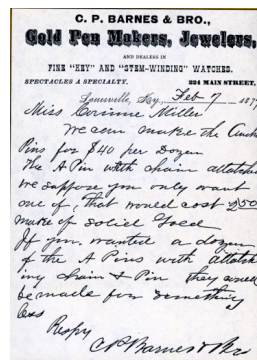 C. P. BARNES & BRO.,
Gold Pen Makers, Jewelers,
AND DEALERS IN
FINE "KEY" AND "STEM-WINDING" WATCHES.
SPECTACLES A SPECIALTY. 224 MAIN STREET,
Louisville, Ky., Feb 7 187
Miss Corinne Miller
We can make the
Pins for $40 per Dozen
The A Pin with chain attatche
we suppose you only want
one of, that would cost $2.50
made of solid Gold
If you wanted a dozen
of the A Pins with attatch
ing chain & Pin they could
be made for something
less
Respy
CP Barnes & Bro